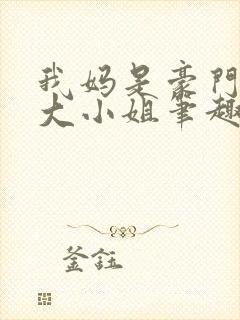 我妈是豪門
大小姐笔趣
釜钰